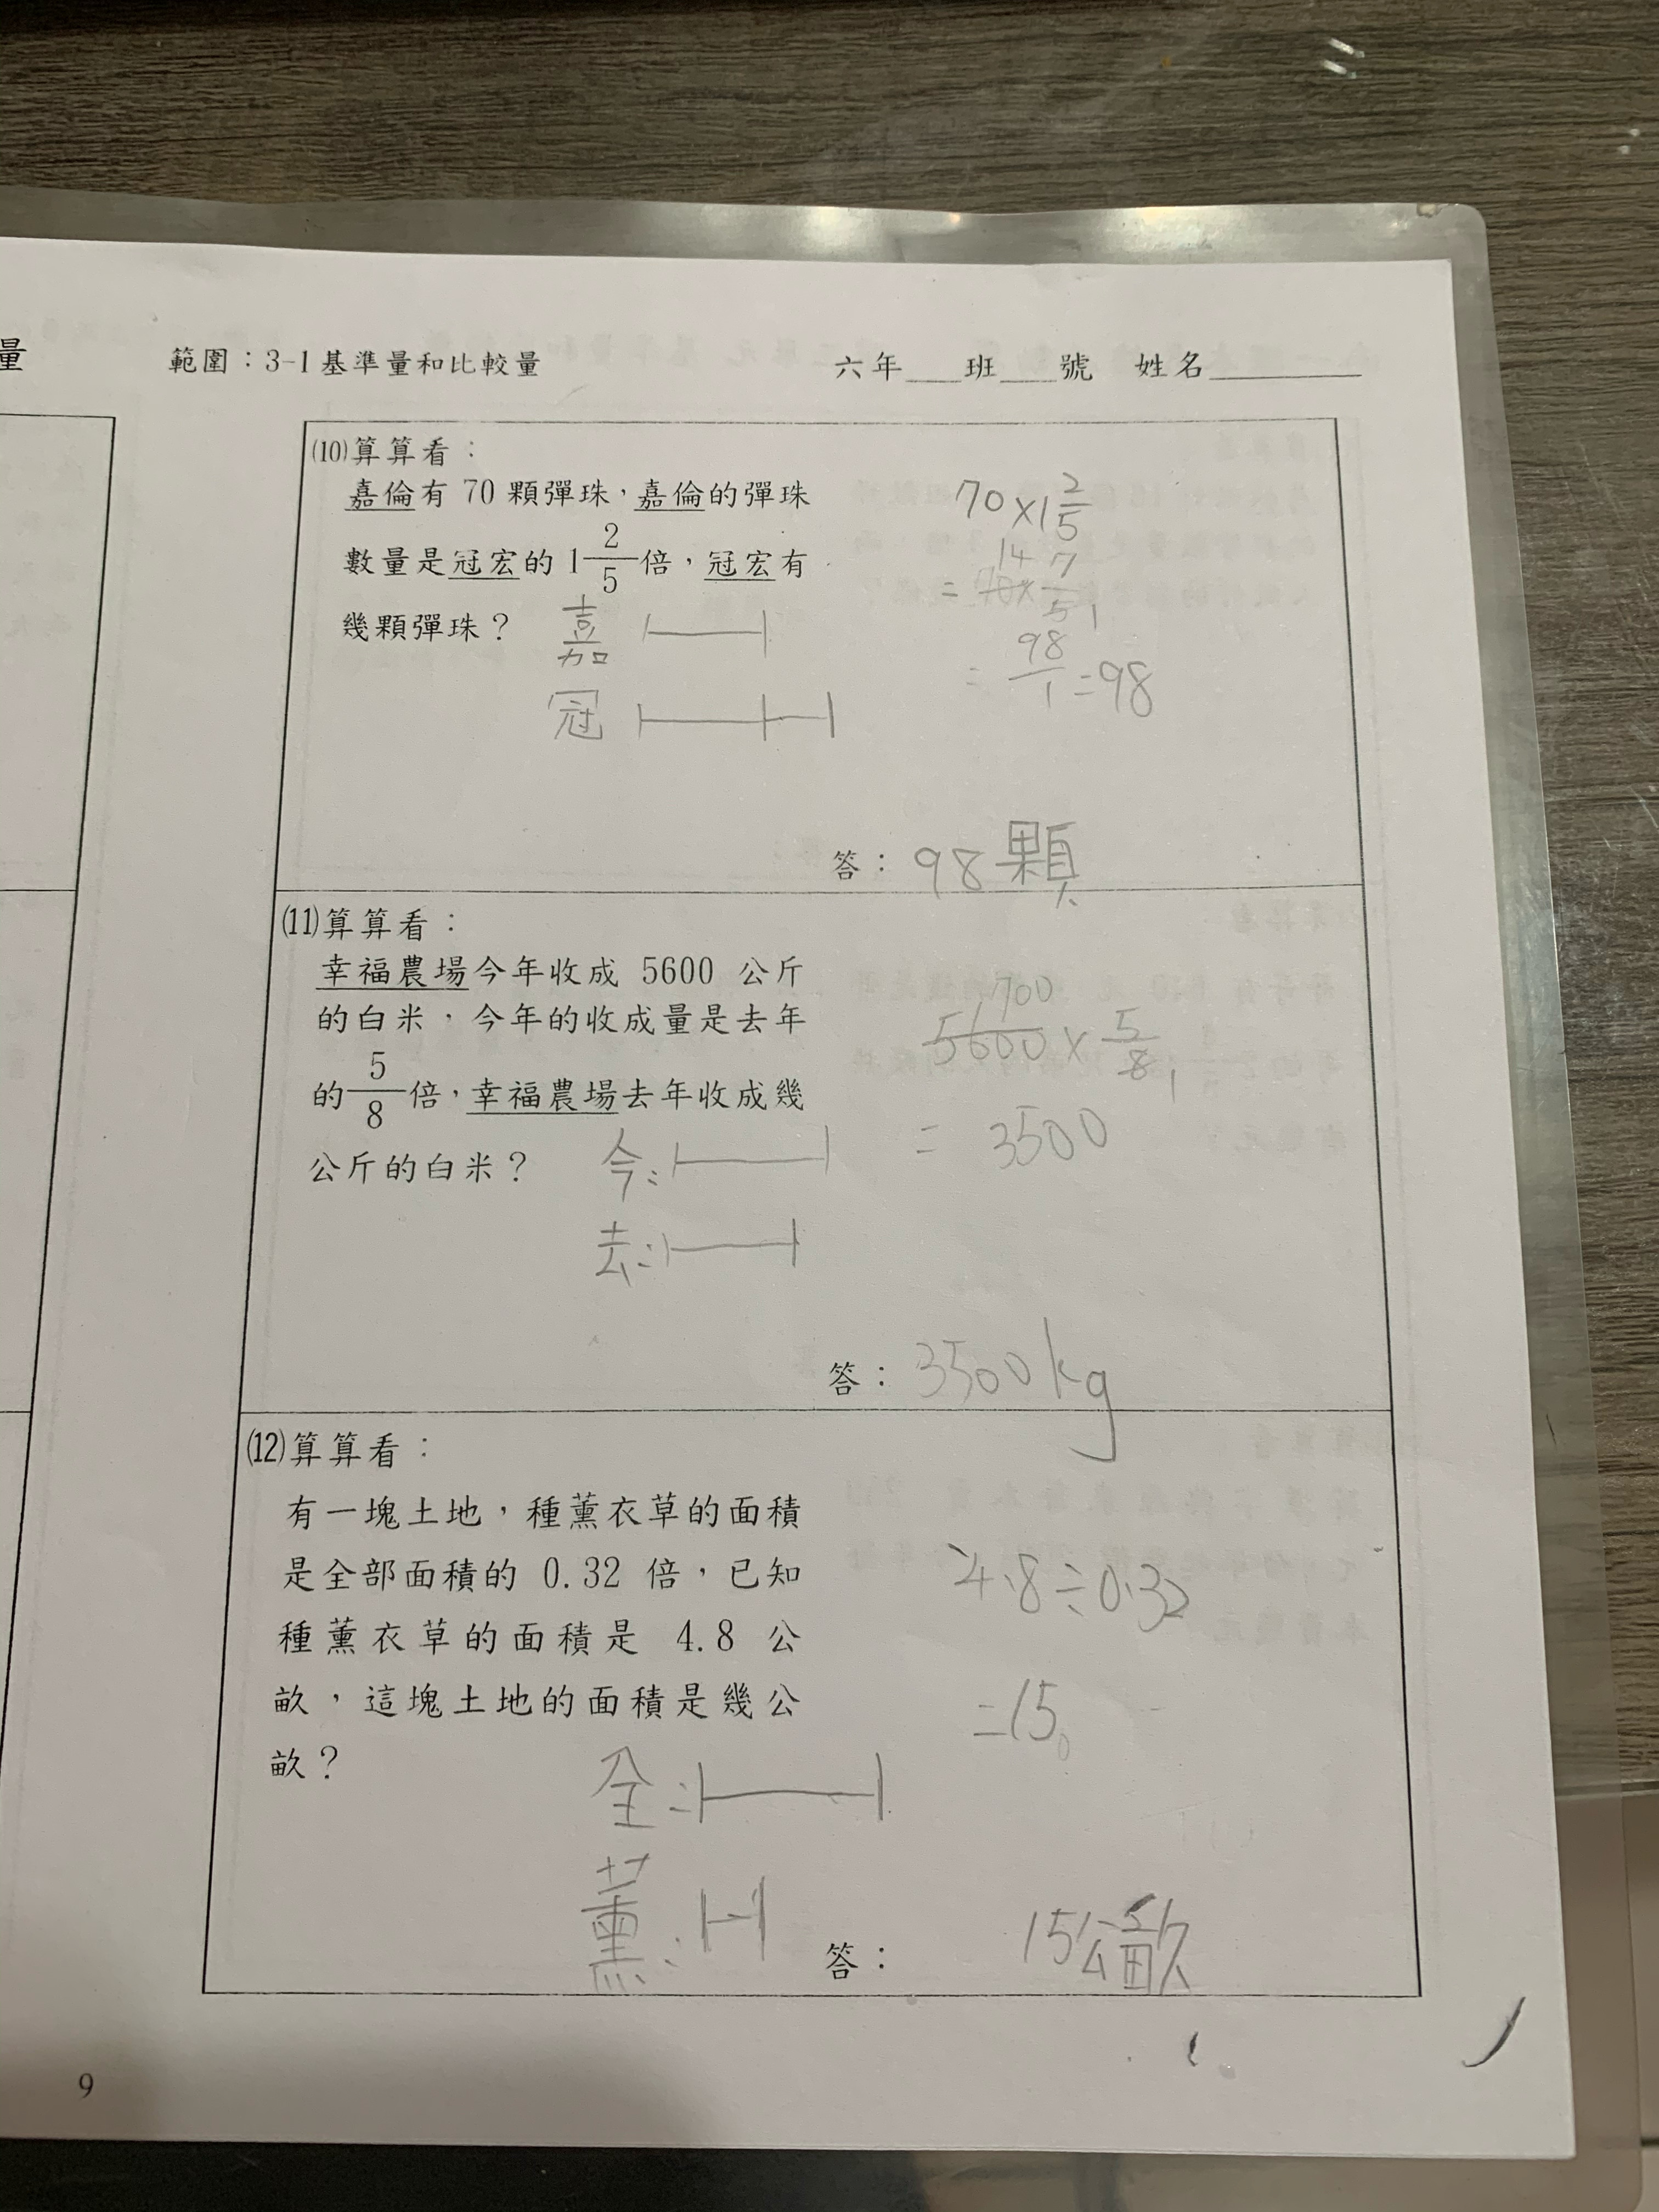 量
範圍：3-1基準量和比較量 六年___班___號 姓名________
⑽算算看：
嘉倫有 70 顆彈珠，嘉倫的彈珠
數量是冠宏的 1 2/5 倍，冠宏有
幾顆彈珠？
嘉
冠
70×1 2/5
14 7
= 70× 5 1
= 98/1 =98
答：98顆
⑾算算看：
幸福農場今年收成 5600 公斤
的白米，今年的收成量是去年
的 5/8 倍，幸福農場去年收成幾
公斤的白米？
今：
去：
700
5600 × 5/8 1
= 3500
答：3500kg
⑿算算看：
有一塊土地，種薰衣草的面積
是全部面積的 0.32 倍，已知
種薰衣草的面積是 4.8 公
畝，這塊土地的面積是幾公
畝？
全：
薰：
4.8÷0.32
=15
答：15公畝
9